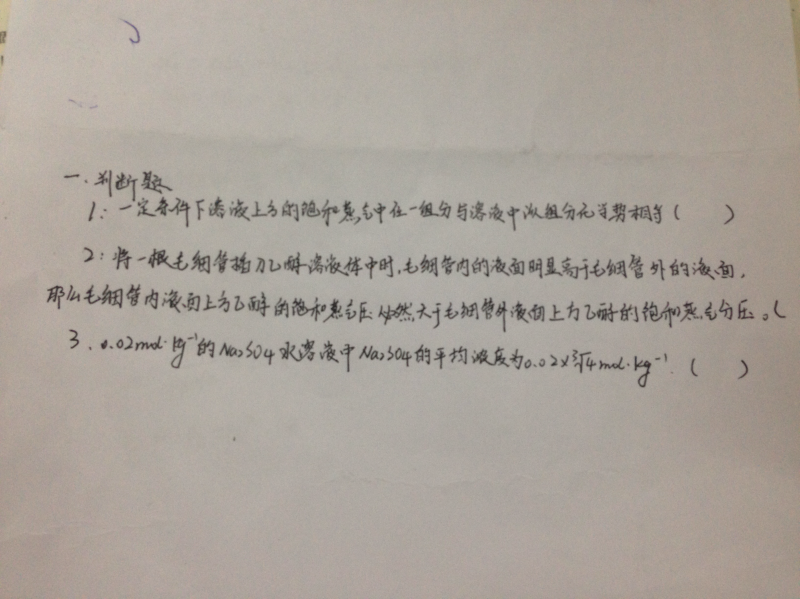 一.判断题
1:一定条件下溶液上方的饱和蒸气中任一组分与溶液中该组分化学势相等( )
2:将一根毛细管插入乙醇溶液体中时,毛细管内的液面明显高于毛细管外的液面,
那么毛细管内液面上方乙醇的饱和蒸气压必然大于毛细管外液面上方乙醇的饱和蒸气分压。(
3.0.02mol·kg⁻¹的Na₂SO4水溶液中Na₂SO4的平均浓度为0.02×∛4mol·kg⁻¹.( )